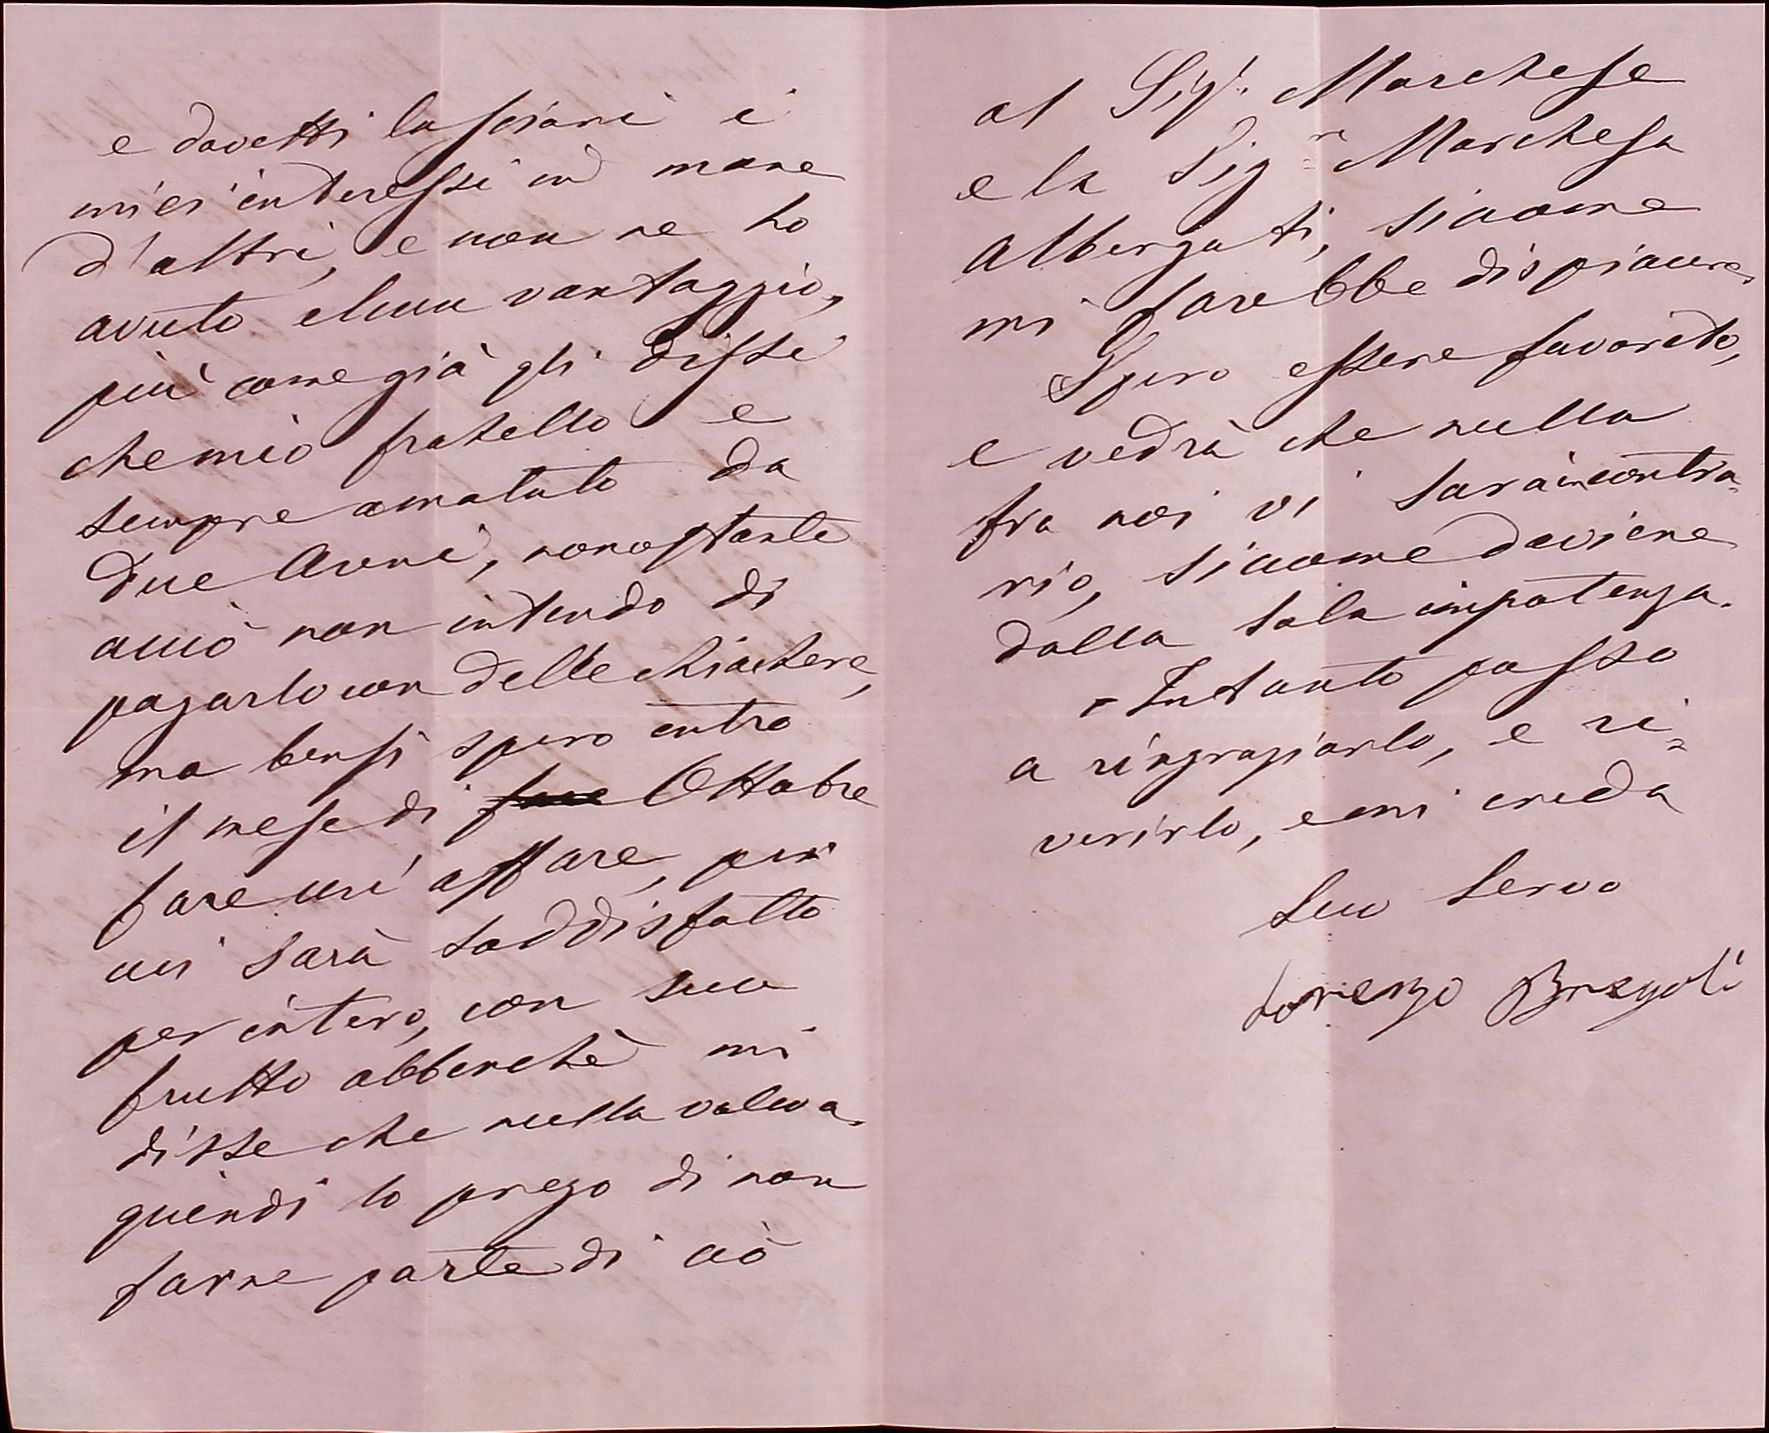 e dovetti lasciare i
miei interessi in mane
d'altri, e non ne ho
avuto alcun vantaggio,
più come già gli dissi
che mio fratello e
sempre amatato da
due Anni, nonostante
acciò non intendo di
pagarlo con delle chiachere,
ma bensì spero entro
il mese di Ottobre
fare un' affare, per
cui sarà soddisfatto
per intero, con suo
frutto abbenchè mi
disse che nulla voleva.
quindi lo prego di non
farne parte di ciò
al Sigr. Marchese
e la Sigra Marchesa
Albergati, siccome
mi sarebbe dispiacere.
Spero essere favorito,
e vedrà che nulla
fra noi vi sarà in contra-
rio, siccome deviene
dalla sola impotenza.
Intanto passo
a ringraziarlo, e ri=
verirlo, e mi creda
Suo Servo
Lorenzo